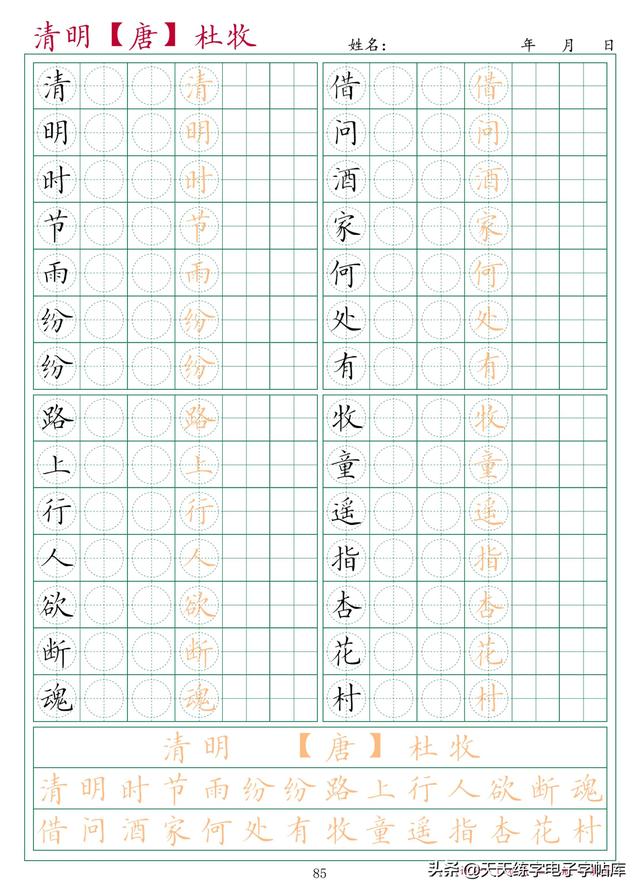 清明【唐】杜牧
姓名： 年 月 日
清 清 借 借
明 明 问 问
时 时 酒 酒
节 节 家 家
雨 雨 何 何
纷 纷 处 处
纷 纷 有 有
路 路 牧 牧
上 上 童 童
行 行 遥 遥
人 人 指 指
欲 欲 杏 杏
断 断 花 花
魂 魂 村 村
清明 【唐】杜牧
清明时节雨纷纷路上行人欲断魂
借问酒家何处有牧童遥指杏花村
85
头条@天天练字电子字帖库